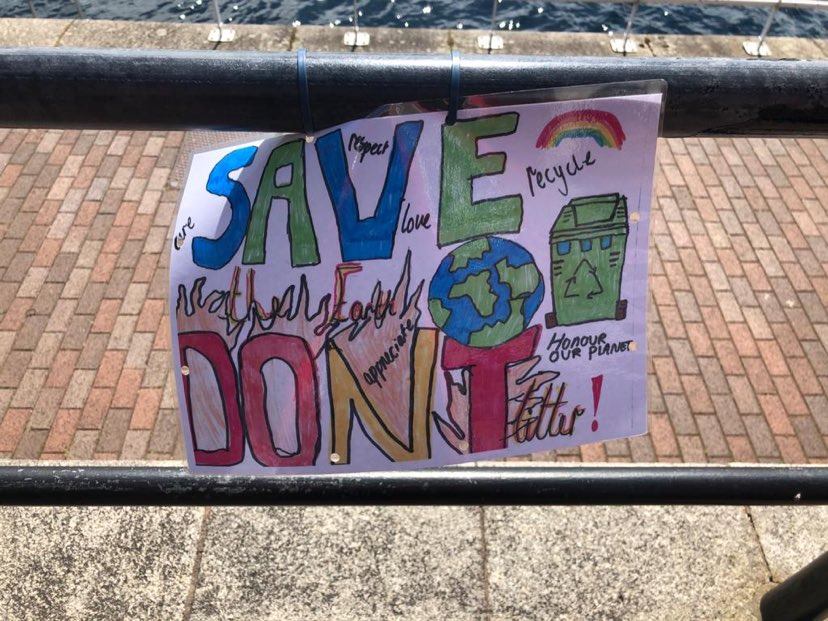 SAVE
respect
care
love
recycle
the Earth
appreciate
HONOUR
OUR PLANET
DONT
litter!